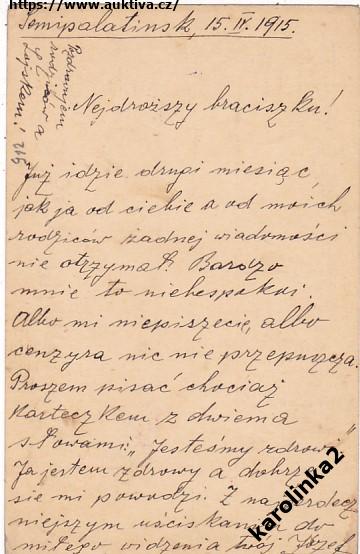 https://www.auktiva.cz/
Semipalatinsk, 15. IV. 1915.
Pozdrawiam
rodziców a
Nejdroższy braciszku!
Już idzie drugi miesiąc,
jak ja od ciebie a od moich
rodziców żadnej wiadomości
nie otrzymał. Bardzo
mnie to niebespokoi
Albo mi niepiszecie, albo
cenzyra nic nie przepuszcza.
Proszem pisać chociaż
karteczkem z dwiema
słowami: „Jesteśmy zdrowi"
Ja jestem zdrowy a dobrze
się mi powodzi. Z najserdecz
niejszym uściskaniem do
miłego widzenia twój Józef
karolinka2